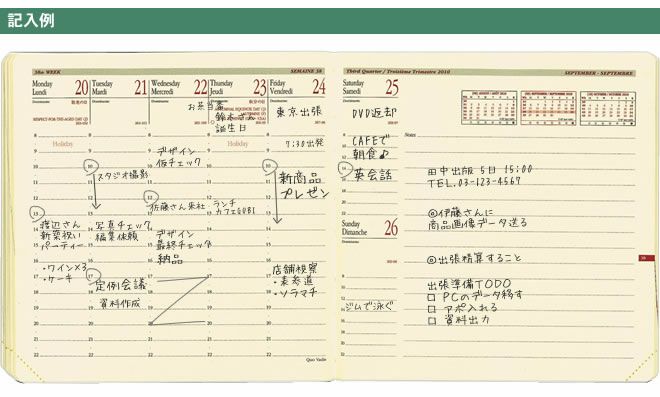 記入例
38th WEEK
SEMAINE 38
Monday
Lundi
20
Tuesday
Mardi
21
Wednesday
Mercredi
22
Thursday
Jeudi
23
Friday
Vendredi
24
RESPECT-FOR-THE-AGED DAY (J)
Holiday
13
渡辺さん
新築祝い
パーティー
・ワイン×3
・ケーキ
10
スタジオ撮影
写真チェック
編集依頼
17
定例会議
資料作成
お茶当番
デザイン
仮チェック
12
佐藤さん来社
デザイン
最終チェック
納品
鈴木さん
誕生日
Holiday
ランチ
カフェGUBI
東京出張
7:30出発
10
新商品
プレゼン
店舗視察
・表参道
・ソラマチ
Quo Vadis
Third Quarter / Troisième Trimestre 2010
SEPTEMBER - SEPTEMBRE
Saturday
Samedi
25
DVD返却
CAFEで
朝食♪
英会話
Sunday
Dimanche
26
ジムで泳ぐ
Notes
田中出版 5日 15:00
TEL.03-123-4567
◎伊藤さんに
商品画像データ送る
◎出張精算すること
出張準備TODO
□ PCのデータ移す
□ アポ入れる
□ 資料出力
38